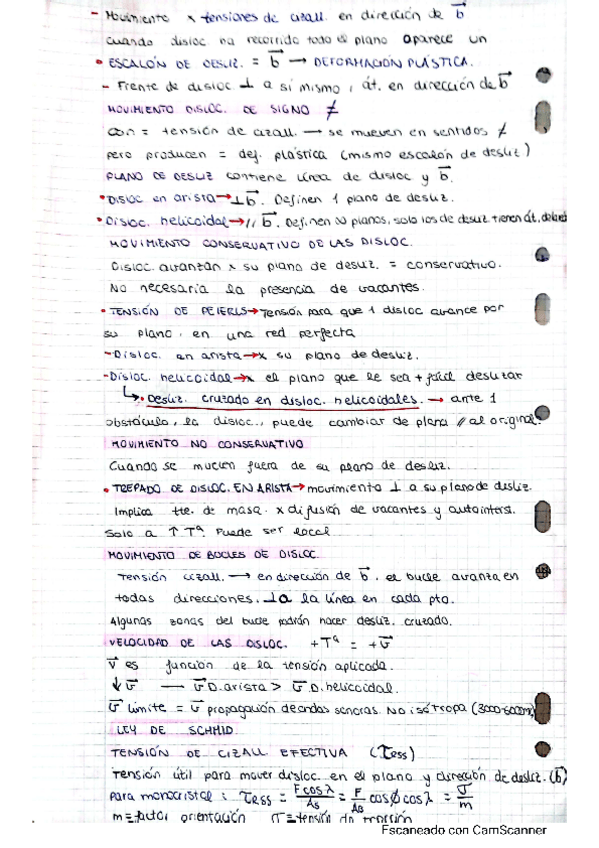 - Movimiento x tensiones de cizall. en dirección de b⃗
cuando disloc ha recorrido todo el plano aparece un
• ESCALÓN DE DESLIZ. = b⃗ → DEFORMACIÓN PLÁSTICA.
- Frente de disloc. ⊥ a si mismo, át. en dirección de b⃗
MOVIMIENTO DISLOC. DE SIGNO ≠
Con = tensión de cizall. → se mueven en sentidos ≠
pero producen = def. plástica (mismo escalón de desliz)
PLANO DE DESLIZ contiene línea de disloc y b⃗.
• DISLOC en arista → ⊥ b⃗. Definen 1 plano de desliz.
• Disloc. helicoidal → // b⃗. Definen ∞ planos, solo los de desliz tienen át.
MOVIMIENTO CONSERVATIVO DE LAS DISLOC.
Disloc. avanzan x su plano de desliz. = conservativo.
No necesaria la presencia de vacantes.
• TENSIÓN DE PEIERLS → Tensión para que 1 disloc avance por
su plano. en una red perfecta
- Disloc. en arista → x su plano de desliz.
- Disloc. helicoidal → x el plano que le sea + fácil deslizar
↳ • Desliz. cruzado en disloc. helicoidales. → ante 1
obstáculo, la disloc., puede cambiar de plano // al original.
MOVIMIENTO NO CONSERVATIVO
Cuando se mueven fuera de su plano de desliz.
• TREPADO DE DISLOC. EN ARISTA → movimiento ⊥ a su plano de desliz.
Implica tte. de masa. x difusión de vacantes y autointers.
Solo a ↑ Tª. Puede ser local
MOVIMIENTO DE BUCLES DE DISLOC.
Tensión cizall. → en dirección de b⃗. el bucle avanza en
todas direcciones. ⊥ a la línea en cada pto.
Algunas zonas del bucle podrán hacer desliz. cruzado.
VELOCIDAD DE LAS DISLOC. +Tª = +v⃗
v⃗ es función de la tensión aplicada.
↓ v⃗ — v⃗ D. arista > v⃗ D. helicoidal.
v⃗ límite = v⃗ propagación de ondas sonoras. No isótropa
LEY DE SCHMID.
TENSIÓN DE CIZALL EFECTIVA (τess)
Tensión útil para mover disloc. en el plano y dirección de desliz. (b⃗)
Para monocristal: τess = F cos λ / As = F / A₀ cos ϕ cos λ = σ / m
m = factor orientación σ = tensión de tracción
Escaneado con CamScanner